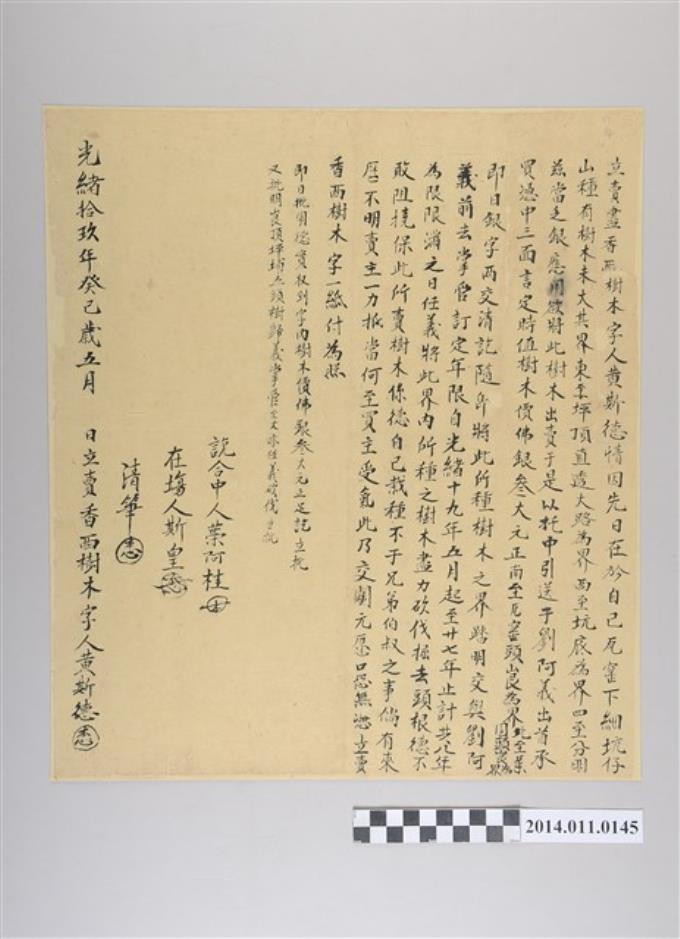 立賣盡香西樹木字人黃斯德情因先日在於自己瓦窑下細坑仔
山種有樹木未大其界東至坪頂直透大路為界西至坑底為界四至分明
茲當乏銀應用欲將此樹木出賣于是以托中引送于劉阿義出首承
買憑中三面言定時值樹木價佛銀叁大元正南至瓦窑頭崀為界北至葉
即日銀字兩交清訖隨即將此所種樹木之界踏明交與劉阿
義前去掌管訂定年限自光緒十九年五月起至廿七年止計共八年
為限限滿之日任義將此界內所種之樹木盡力砍伐掘去頭根德不
敢阻撓保此所賣樹木係德自己栽種不干兄弟伯叔之事倘有來
歷不明賣主一力抵當何至買主受虧此乃交關元歷口恐無憑立賣
香西樹木字一紙付為照
即日批明德實收到字內樹木價佛銀叁大元正足訖立批
又批明崀頂坪埔五頭樹歸義掌管亦任義砍伐立批
說合中人葉阿桂
在塲人斯皇
清筆
光緒拾玖年癸巳歲五月 日立賣香西樹木字人黃斯德
2014.011.0145